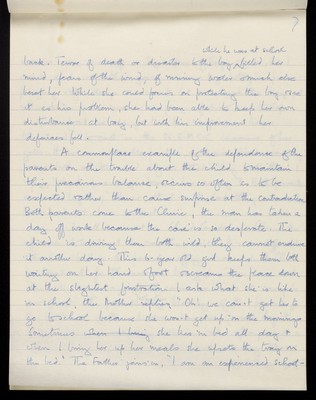 7
while he was at school
break. Terror of death or disaster to the boy filled her
mind, fears of the wind, of running water & much else
beset her. While she could focus on protecting the boy over
it is his problem, she had been able to keep her own
disturbance at bay, but with his improvement her
defences fell.
A commonplace example of the dependence of the
parents on the trouble about the child to maintain
their precarious balance, occurs so often as to be
expected rather than cause surprise at the contradiction.
Both parents come to the Clinic, the man has taken a
day off work because the case is so desperate. The
child is driving them both wild, they cannot endure
it another day. This 6 year old girl keeps them both
waiting on her hand & foot & screams the place down
at the slightest frustration. I ask what she is like
in school, the Mother replying, "Oh! we can't get her to
go to school because she won't get up in the mornings.
Sometimes I leave her in bed all day &
when I bring her up her meals she upsets the tray on
the bed." The Father joins in, "I am an experienced school-